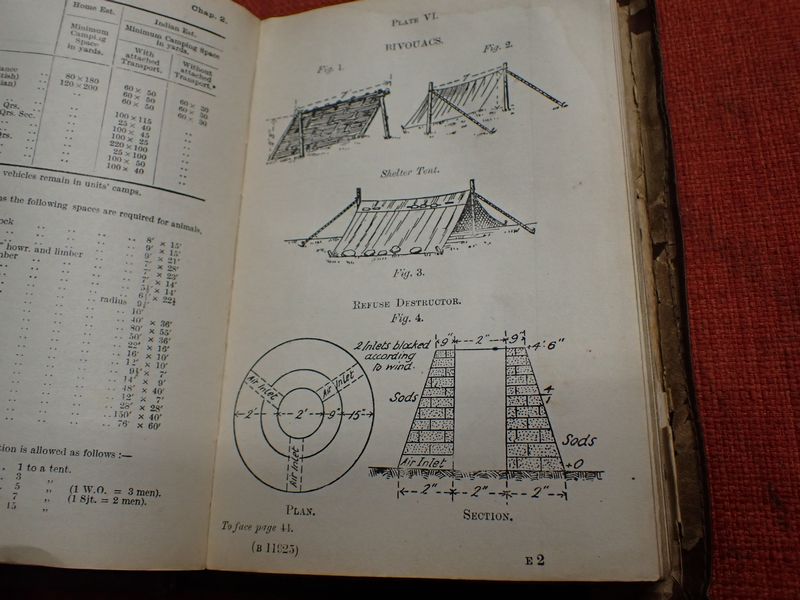 Chap. 2.
Home Est.
Minimum
Camping
Space
in yards.
Indian Est.
Minimum Camping Space
in yards.
With
attached
Transport.
Without
attached
Transport.*
80 × 180
120 × 200
60 × 50
60 × 50
60 × 50
60 × 50
60 × 50
60 × 50
Qrs.
Qrs. Sec.
100 × 115
25 × 40
100 × 45
100 × 25
220 × 100
25 × 100
100 × 50
100 × 40
vehicles remain in units' camps.
as the following spaces are required for animals,
8' × 15'
9' × 15'
howr. and limber .. 9' × 21'
7' × 28'
7' × 23'
7' × 14'
5½' × 14'
radius
10'
40' × 36'
80' × 55'
50' × 36'
22' × 16'
16' × 10'
12' × 10'
9½' × 7'
14' × 9'
48' × 40'
12' × 7'
28' × 28'
150' × 40'
76' × 60'
tion is allowed as follows :—
1 to a tent.
3 "
5 " (1 W.O. = 3 men).
7 " (1 Sjt. = 2 men).
15 "
PLATE VI.
BIVOUACS.
Fig. 1.
Fig. 2.
7'
7'
Shelter Tent.
Fig. 3.
REFUSE DESTRUCTOR.
Fig. 4.
2 Inlets blocked
according
to wind.
9" 2" 9"
+4'6"
Air Inlet
Air Inlet
Air Inlet
2' 2' 9" 15"
Sods
4
1
Sods
Air Inlet
+0
2" 2" 2"
PLAN.
SECTION.
To face page 44.
(B 11925)
E 2